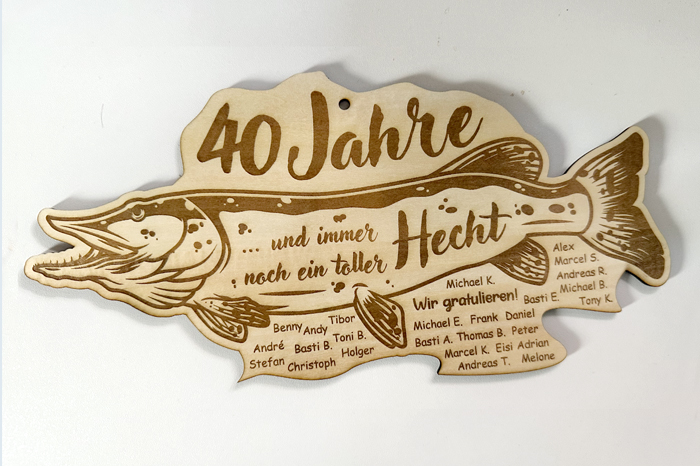 40 Jahre
... und immer
noch ein toller
Hecht
Benny Andy Tibor
André Basti B. Toni B.
Stefan Christoph Holger
Michael K.
Wir gratulieren!
Alex
Marcel S.
Andreas R.
Michael B.
Basti E. Tony K.
Michael E. Frank Daniel
Basti A. Thomas B. Peter
Marcel K. Eisi Adrian
Andreas T. Melone